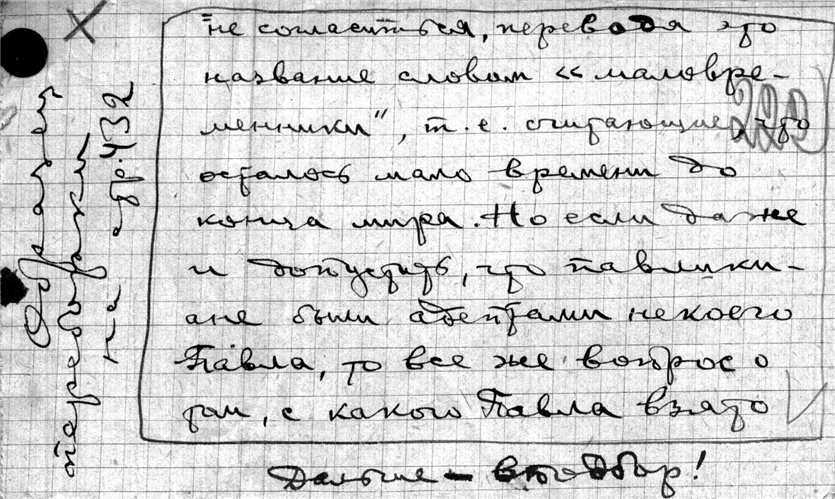 не согласиться, переводя это
название словом «маловре-
менники", т.е. считающие, что
осталось мало времени до
конца мира. Но если даже
и допустить, что павлики-
ане были адептами некоего
Павла, то все же вопрос о
том, с какого Павла взято
Дальше – в подбор!
Образец
переборки
на стр. 432